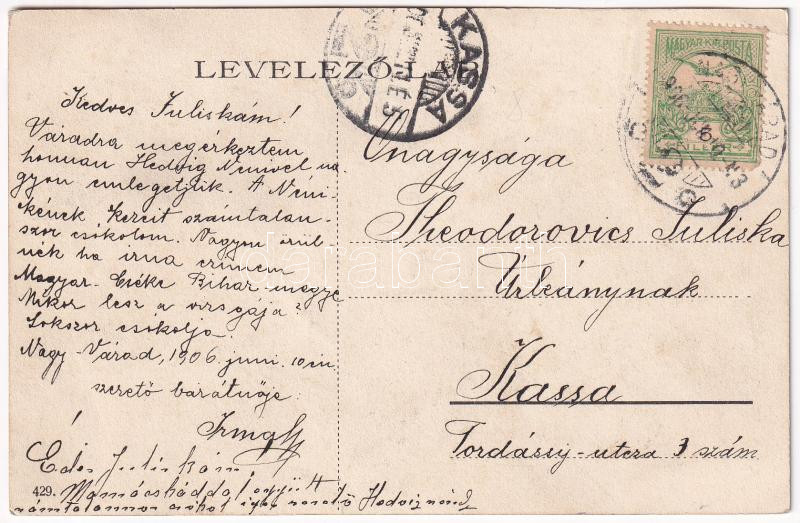 LEVELEZŐ LAP
KASSA
MAGYAR KIR. POSTA
Kedves Juliskám!
Váradra megérkeztem
honnan Hedvig Nénivel na-
gyon emlegetjük. A Néni-
kének kezeit számtalan-
szor csókolom. Nagyon örül-
nék ha irna czimem
Magyar-Cséke Bihar-megye
Mikor lesz a vizsgája?
Sokszor csókolja
Nagy-Várad, 1906. juni. 10-én
szerető barátnője
Irma
Édes Juliskám!
Mamácskáddal együtt
számtalanszor csókol igaz szerető Hedvig nénéd
429.
Őnagysága
Theodorovics Juliska
Úrleánynak
Kassa
Tordássy-utcza 3 szám
darabanth